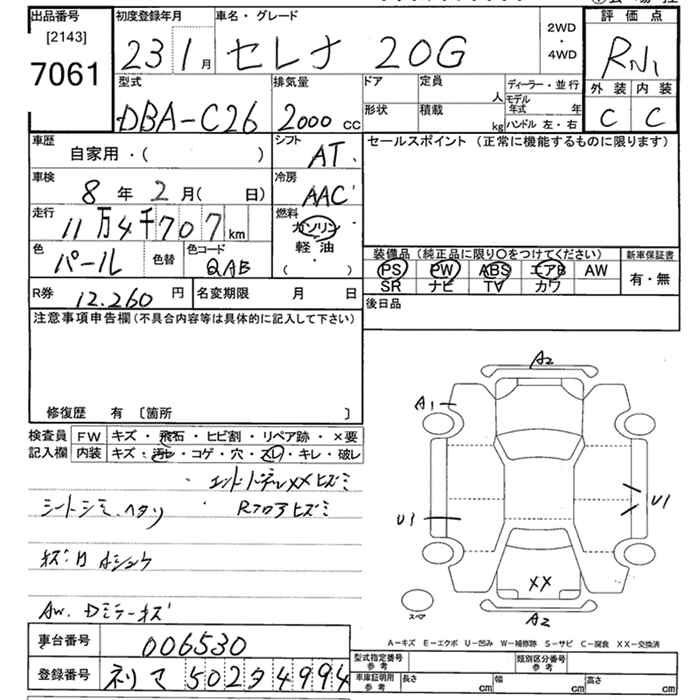 出品番号
[2143]
7061
初度登録年月
23 1月
車名・グレード
セレナ 20G
2WD
・
4WD
評価点
R
外装 内装
C C
型式
DBA-C26
排気量
2000 cc
ドア
定員
人
ディーラー・並行
モデル年式 年
形状
積載
kg
ハンドル 左・右
車歴
自家用・( )
シフト
AT
セールスポイント (正常に機能するものに限ります)
車検
8年 2月( 日)
冷房
AAC
走行
11万4千707km
燃料
ガソリン
軽油
( )
色
パール
色替
色コード
QAB
装備品 (純正品に限り○をつけてください)
新車保証書
PS PW ABS エアB AW
SR ナビ TV カワ
有・無
R券 12.260円
名変期限 月 日
後日品
注意事項申告欄 (不具合内容等は具体的に記入して下さい)
修復歴 有 〔箇所 〕
検査員記入欄
FW キズ・飛石・ヒビ割・リペア跡・×要
内装 キズ・汚レ・コゲ・穴・スレ・キレ・破レ
XXヒズミ
シートシミ.ヘタリ
Rフロアヒズミ
AW. Dミラーキズ
A2
A1
U1
U1
XX
A2
スペア
A-キズ E-エクボ U-凹み W-補修跡 S-サビ C-腐食 XX-交換済
車台番号 006530
登録番号 ネリマ 502タ4994
型式指定番号
参考
類別区分番号
参考
車庫証明用
参考
長さ cm
幅 cm
高さ cm